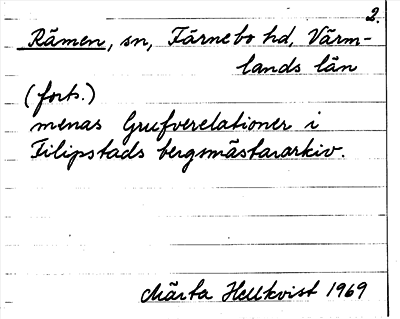 2.
Rämen, sn, Färnebo hd, Värm-
lands län
(forts.)
menas Grufverelationer i
Filipstads bergsmästararkiv.
Märta Hellkvist 1969